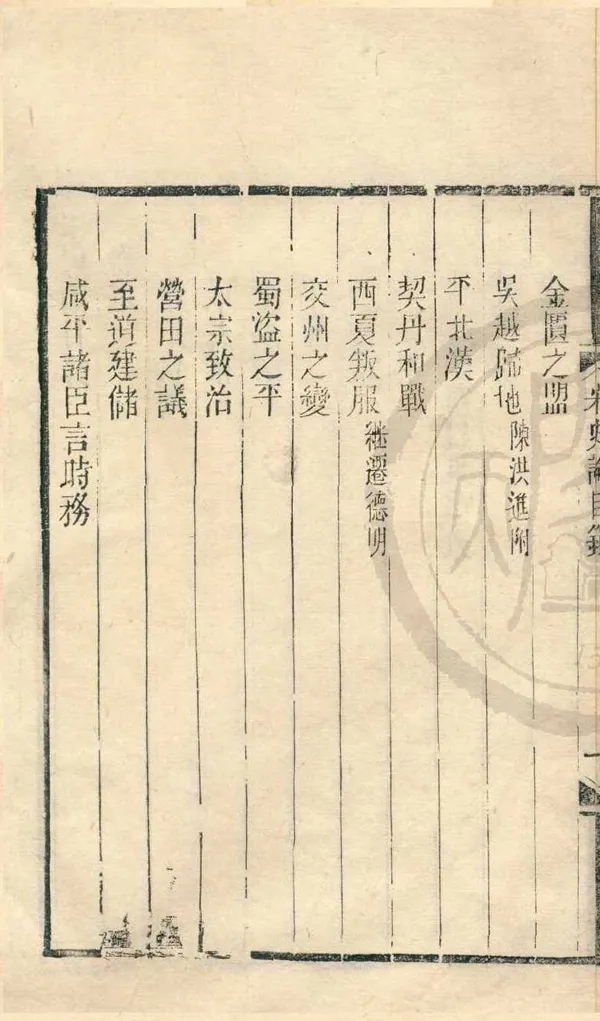 宋史論目錄
金匱之盟
吳越歸地陳洪進附
平北漢
契丹和戰
西夏叛服繼遷德明
交州之變
蜀盜之平
太宗致治
營田之議
至道建儲
咸平諸臣言時務